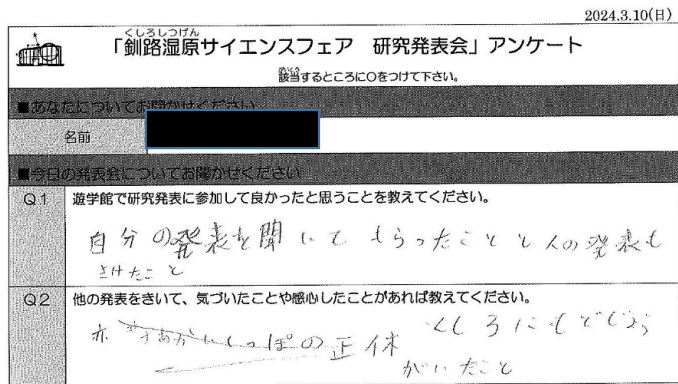 2024.3.10(日)
くしろしつげん
「釧路湿原サイエンスフェア 研究発表会」アンケート
該当するところに○をつけて下さい。
■あなたについてお聞かせください
名前
■今日の発表会についてお聞かせください
Q1 遊学館で研究発表に参加して良かったと思うことを教えてください。
自分の発表を聞いてもらったことと人の発表も
きけたこと
Q2 他の発表をきいて、気づいたことや感心したことがあれば教えてください。
赤いしっぽの正体 くしろにもどじょう
がいたこと